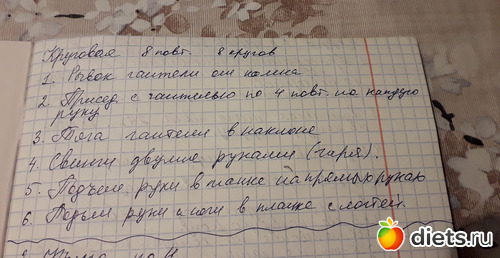 Круговая 8 повт. 8 кругов
1. Рывок гантели от колена
2. Присед. с гантелью по 4 повт. на каждую
руку
3. Тяга гантели в наклоне
4. Свинги двумя руками (гиря).
5. Подъем руки в планке на прямых руках
6. Подъем руки и ноги в планке с локтей.
diets.ru